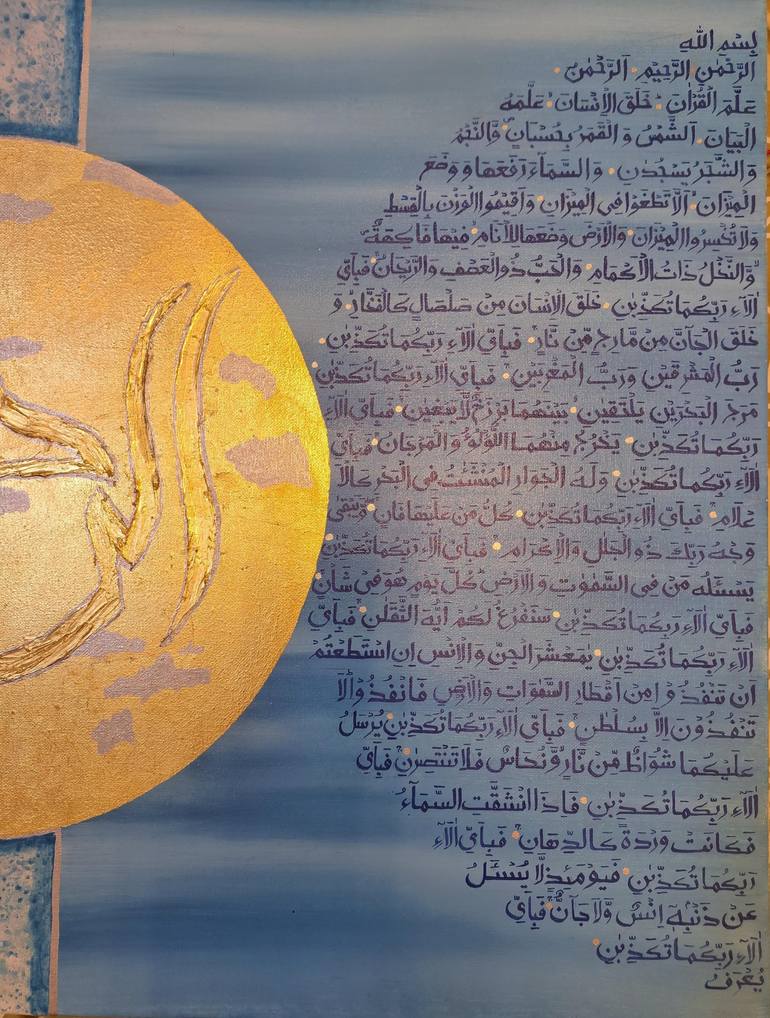 بِسْمِ اللهِ
الرَّحْمٰنِ الرَّحِيْمِ • اَلرَّحْمٰنُ •
عَلَّمَ الْقُرْاٰنَ • خَلَقَ الْاِنْسَانَ • عَلَّمَهُ
الْبَيَانَ • اَلشَّمْسُ وَ الْقَمَرُ بِحُسْبَانٍ وَّالنَّجْمُ
وَ الشَّجَرُ يَسْجُدٰنِ • وَ السَّمَآءَ رَفَعَهَا وَ وَضَعَ
الْمِيْزَانَ • اَلَّا تَطْغَوْا فِى الْمِيْزَانِ • وَ اَقِيْمُوا الْوَزْنَ بِالْقِسْطِ
وَلَا تُخْسِرُوا الْمِيْزَانَ • وَالْاَرْضَ وَضَعَهَا لِلْاَنَامِ • فِيْهَا فَاكِهَةٌ
وَّالنَّخْلُ ذَاتُ الْاَكْمَامِ • وَالْحَبُّ ذُو الْعَصْفِ وَالرَّيْحَانُ • فَبِاَىِّ
اٰلَآءِ رَبِّكُمَا تُكَذِّبٰنِ • خَلَقَ الْاِنْسَانَ مِنْ صَلْصَالٍ كَالْفَخَّارِ • وَ
خَلَقَ الْجَآنَّ مِنْ مَّارِجٍ مِّنْ نَّارٍ • فَبِاَىِّ اٰلَآءِ رَبِّكُمَا تُكَذِّبٰنِ •
رَبُّ الْمَشْرِقَيْنِ وَرَبُّ الْمَغْرِبَيْنِ • فَبِاَىِّ اٰلَآءِ رَبِّكُمَا تُكَذِّبٰنِ
مَرَجَ الْبَحْرَيْنِ يَلْتَقِيٰنِ • بَيْنَهُمَا بَرْزَخٌ لَّا يَبْغِيٰنِ • فَبِاَىِّ اٰلَآءِ
رَبِّكُمَا تُكَذِّبٰنِ • يَخْرُجُ مِنْهُمَا اللُّؤْلُؤُ وَ الْمَرْجَانُ • فَبِاَىِّ
اٰلَآءِ رَبِّكُمَا تُكَذِّبٰنِ • وَلَهُ الْجَوَارِ الْمُنْشَئٰتُ فِى الْبَحْرِ كَالْا
عْلَامِ • فَبِاَىِّ اٰلَآءِ رَبِّكُمَا تُكَذِّبٰنِ • كُلُّ مَنْ عَلَيْهَا فَانٍ • وَّيَبْقٰى
وَجْهُ رَبِّكَ ذُو الْجَلٰلِ وَالْاِكْرَامِ • فَبِاَىِّ اٰلَآءِ رَبِّكُمَا تُكَذِّبٰنِ
يَسْئَلُهُ مَنْ فِى السَّمٰوٰتِ وَ الْاَرْضِ كُلَّ يَوْمٍ هُوَ فِىْ شَاْنٍ
فَبِاَىِّ اٰلَآءِ رَبِّكُمَا تُكَذِّبٰنِ • سَنَفْرُغُ لَكُمْ اَيُّهَ الثَّقَلٰنِ • فَبِاَىِّ
اٰلَآءِ رَبِّكُمَا تُكَذِّبٰنِ • يٰمَعْشَرَ الْجِنِّ وَ الْاِنْسِ اِنِ اسْتَطَعْتُمْ
اَنْ تَنْفُذُوْا مِنْ اَقْطَارِ السَّمٰوَاتِ وَ الْاَرْضِ فَانْفُذُوْا لَا
تَنْفُذُوْنَ اِلَّا بِسُلْطٰنٍ • فَبِاَىِّ اٰلَآءِ رَبِّكُمَا تُكَذِّبٰنِ • يُرْسَلُ
عَلَيْكُمَا شُوَاظٌ مِّنْ نَّارٍ وَّ نُحَاسٌ فَلَا تَنْتَصِرٰنِ • فَبِاَىِّ
اٰلَآءِ رَبِّكُمَا تُكَذِّبٰنِ • فَاِذَا انْشَقَّتِ السَّمَآءُ
فَكَانَتْ وَرْدَةً كَالدِّهَانِ • فَبِاَىِّ اٰلَآءِ
رَبِّكُمَا تُكَذِّبٰنِ • فَيَوْمَئِذٍ لَّا يُسْئَلُ
عَنْ ذَنْبِهٖ اِنْسٌ وَّلَا جَآنٌّ • فَبِاَىِّ
اٰلَآءِ رَبِّكُمَا تُكَذِّبٰنِ •
يُعْرَفُ